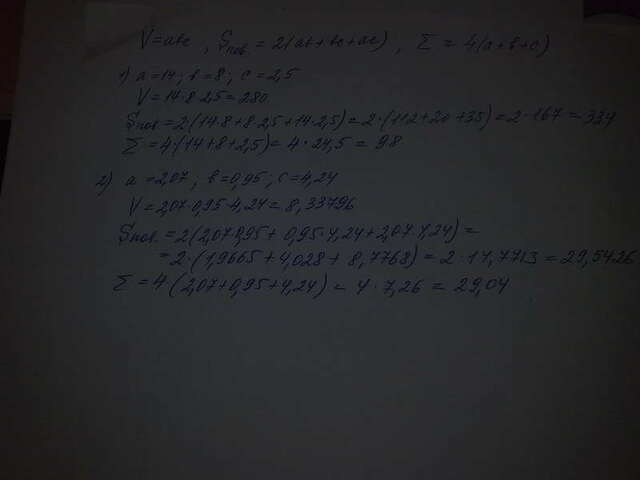 V=abc, Sпов. = 2(ab+bc+ac), Σ = 4(a+b+c)
1) a=14; b=8; c=2,5
V=14·8·2,5=280
Sпов.=2·(14·8+8·2,5+14·2,5)=2·(112+20+35)=2·167=334
Σ=4·(14+8+2,5)=4·24,5=98
2) a=2,07, b=0,95; c=4,24
V=2,07·0,95·4,24=8,33796
Sпов.=2(2,07·0,95+0,95·4,24+2,07·4,24)=
=2·(1,9665+4,028+8,7768)=2·14,7713=29,5426
Σ=4·(2,07+0,95+4,24)=4·7,26=29,04